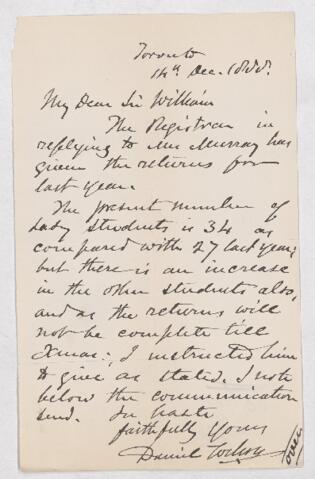 Toronto
14th Dec. 1888.
My Dear Sir William
The Registrar in
replying to Mr Murray has
given the returns for
last year.
The present number of
lady students is 34 as
compared with 27 last year;
but there is an increase
in the other students also,
and as the returns will
not be complete till
Xmas:, I instructed him
to give as stated. I note
below the communication
send. In haste
faithfully Yours
Daniel Wilson
over